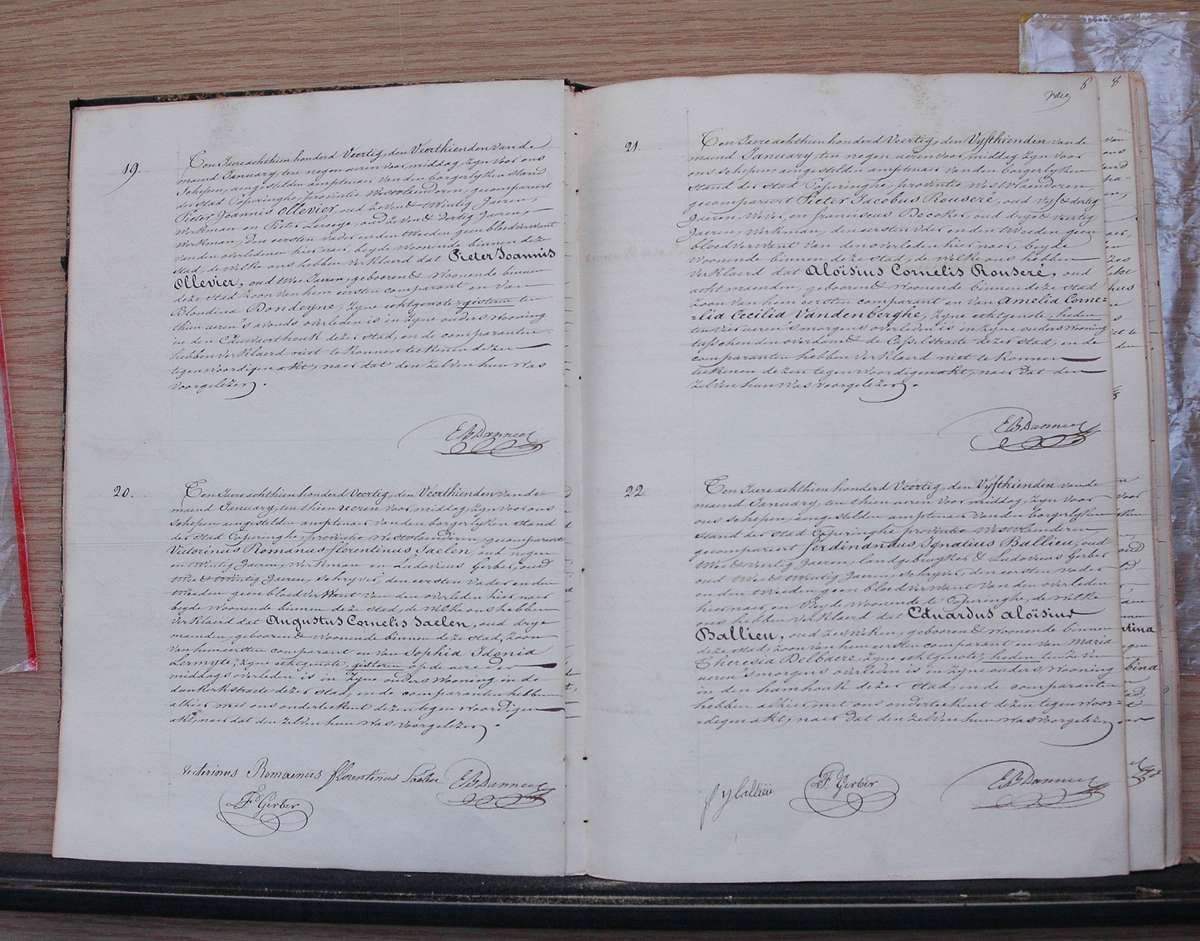 19.
Ten Jaere achthien honderd Veertig, den Veerthienden van de
maend January, ten negen ueren voor middag, zyn voor ons
schepen, aengestelden amptenaer van den borgerlyken stand
der stad Poperinghe, provintie Westvlaenderen, gecompareert
Pieter Joannis Ollevier, oud zeven & twintig Jaeren,
Werkman en Pieter oud en dertig Jaeren,
Werkman, den eersten vader en den tweeden geen bloedverwant
van den overleden hier naer, beyde woonende binnen deze
stad, de welke ons hebben verklaerd dat Pieter Joannis
Ollevier, oud twee Jaeren, geboren & woonende binnen
deze stad, zoon van hem eersten comparant en van
Blondina Dondeyne, zyne echtgenote, gisteren ten
thien ueren 's avonds overleden is in zyne ouders wooning
in den deze stad, en de comparanten
hebben verklaerd niet te konnen teekenen dezen
tegenwoordigen akt, naer dat den zelven hun was
voorgelezen.
E B Dannoo
20.
Ten Jaere achthien honderd Veertig, den Veerthienden van de
maend January, ten thien ueren voor middag, zyn voor ons
schepen aengestelden amptenaer van den borgerlyken stand
der stad Poperinghe, provintie Westvlaenderen, gecompareert
Victorinus Romanus florentinus Saelen, oud negen
en twintig Jaeren, Werkman en Ludovicus Gerber, oud
twee & twintig Jaeren, schryver, den eersten vader en den
tweeden geen bloedverwant van den overleden hier naer
beyde woonende binnen deze stad, de welke ons hebben
verklaerd dat Augustus Cornelis Saelen, oud drye
maenden, geboren & woonende binnen deze stad, zoon
van hem eersten comparant en van Sophia Idonia
Lermyte, zyne echtgenote, gisteren op de ure
middags overleden is in zyne ouders wooning in de
dunkerkstraete dezer stad, en de comparanten hebben
alhier met ons onderteekent dezen tegenwoordigen
akt, naer dat den zelven hun was voorgelezen.
victorinus Romanus florentinus Saelen E B Dannoo
L F Gerber
6
8
21.
Ten Jaere achthien honderd Veertig, den Vyfthienden van de
maend January, ten negen ueren voor middag zyn voor
ons schepen aengestelden amptenaer van den borgerlyken
stand der stad Poperinghe provintie Westvlaenderen,
gecompareert Pieter Jacobus Rouseré, oud vyf & dertig
Jaeren, Wever, en franciscus Decoker, oud drye & veertig
Jaeren, Werkman, den eersten vader en den tweeden geen
bloedverwant van den overleden hier naer, beyde
woonende binnen deze stad, de welke ons hebben
verklaerd dat Aloïsius Cornelis Rouseré, oud
acht maenden, geboren & woonende binnen deze stad
zoon van hem eersten comparant en van Amelia Corne-
lia Cecilia Vandenberghe, zyne echtgenote, heden
ten vier ueren 's morgens overleden is in zyne ouders wooning
dezer stad, en de
comparanten hebben verklaerd niet te konnen
teekenen dezen tegenwoordigen akt, naer dat den
zelven hun was voorgelezen.
E B Dannoo
22
Ten Jaere achthien honderd Veertig, den Vyfthienden van de
maend January, ten thien ueren voor middag, zyn voor
ons schepen, aengestelden amptenaer van den borgerlyken
stand der stad Poperinghe provintie Westvlaenderen
gecompareert ferdinandus Ignatius Ballieu, oud
twee & veertig Jaeren, landgebruyker & Ludovicus Gerber
oud twee & twintig Jaeren, schryver, den eersten vader
en den tweeden geen bloedverwant van den overleden
hier naer, en beyde woonende te Poperinghe, de welke
ons hebben verklaerd dat Eduardus aloïsius
Ballieu, oud zes weken, geboren & woonende binnen
deze stad, zoon van hem eersten comparant en van Maria
Theresia Delbaere zyne echtgenote, heden te zeven
ueren 's morgens overleden is in zyne ouders wooning
in den hamhouk dezer stad, en de comparanten
hebben alhier met ons onderteekent dezen tegenwoor-
digen akt, naer dat den zelven hun was voorgelezen
f y ballieu L F Gerber E B Dannoo